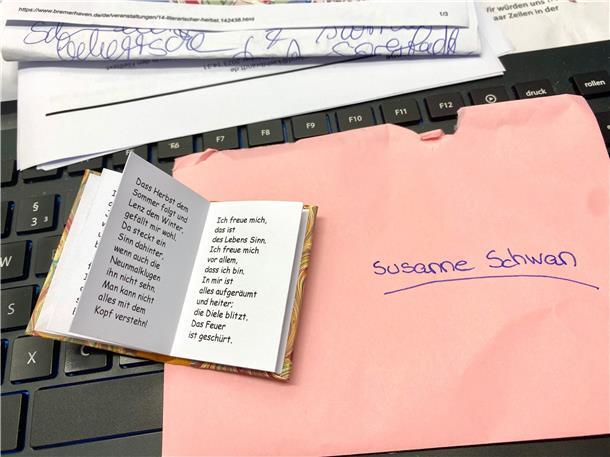 https://www.bremerhaven.de/de/veranstaltungen/14-literarischer-herbst.142436.html
1/3
für würden uns
aar Zeilen in der
F6
F7
F8
F9
F10
F11
F12
druck
rollen
§
3
W
S
X
C
Dass Herbst dem
Sommer folgt und
Lenz dem Winter,
gefällt mir wohl.
Da steckt ein
Sinn dahinter,
wenn auch die
Neunmalklugen
ihn nicht sehn.
Man kann nicht
alles mit dem
Kopf verstehn!
Ich freue mich,
das ist
des Lebens Sinn.
Ich freue mich
vor allem,
dass ich bin.
In mir ist
alles aufgeräumt
und heiter;
die Diele blitzt.
Das Feuer
ist geschürt.
Susanne Schwan